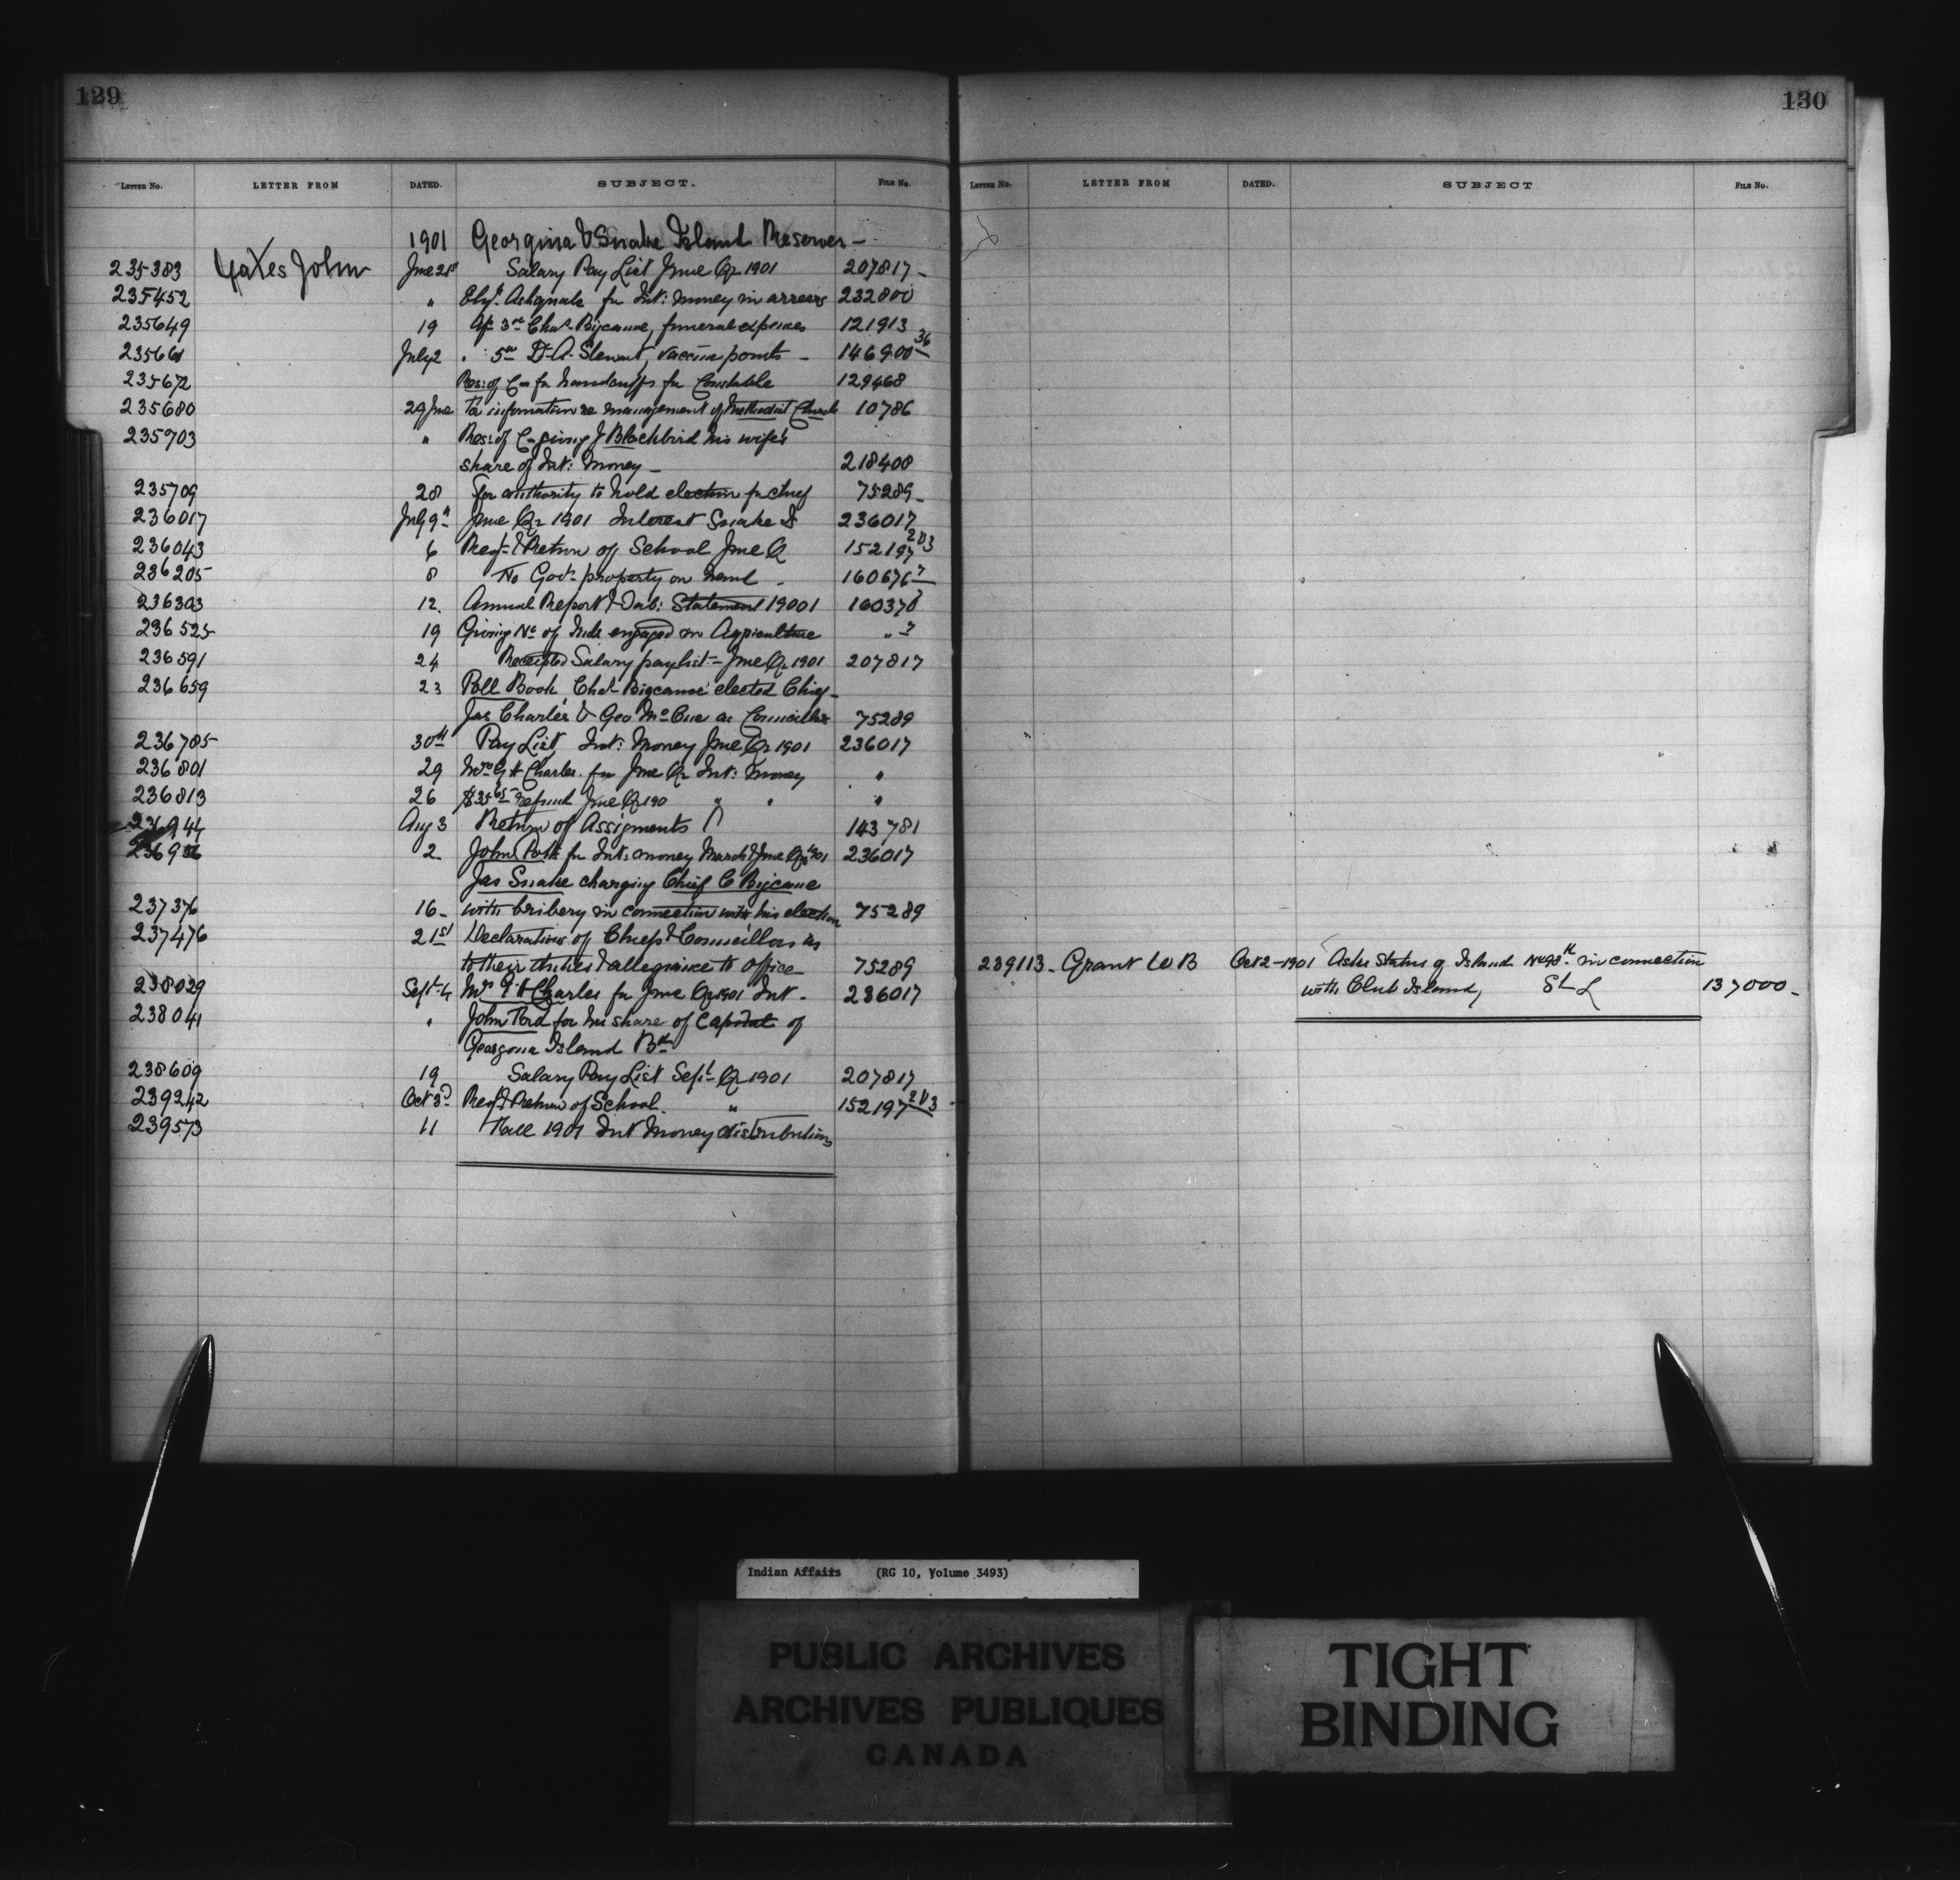 129
LETTER No. LETTER FROM DATED. SUBJECT. FILE No.
1901 Georgina & Snake Island Reserves -
235383 Yates John June 21st Salary Pay List June Qr 1901 207817 -
235452 " for Int: money in arrears 232800
235649 19 3rd Chas Bigcanoe, funeral expenses 121913
235661 July 2 " 5th Dr A. Stewart, vaccine points - 146900 36
235672 Res: of C- for handcuffs for Constable 129468
235680 29 June for information re management of Methodist Church 10786
235703 " Res: of C- giving J Blackbird his wife's
share of Int: Money - 218408
235709 28 for authority to hold election for chief 75289 -
236017 July 9th June Qr 1901 Interest Snake I 236017
236043 6 Req: & Return of School June Q 152197 203
236205 8 No Govt property on hand - 160676 7
236303 12. Annual Report & Tab: Statement 19001 160378
236525 19 Giving No of Inds engaged in Agriculture " 7
236591 24 Receipted Salary pay list - June Qr 1901 207817
236659 23 Poll Book, Chas Bigcanoe elected Chief -
Jas Charles & Geo McCue as Councillors 75289
236785 30th Pay List Int: Money June Qr 1901 236017
236801 29 Mrs G H Charles for June Qr Int: Money "
236813 26 $35 65 refund June Qr 190 " " "
236944 Aug 3 Return of Assigments 143781
236956 2. John for Int: money March & June Qrs 1901 236017
Jas Snake charging Chief C Bigcanoe
237376 16 - with bribery in connection with his election 75289
237476 21st Declarations of Chief & Councillors as
to their duties & allegiance to office 75289
238029 Sept 4 Mrs G H Charles for June Qr 1901 Int. 236017
238041 " John for his share of Capital of
Georgina Island Bd
238609 19 Salary Pay List Sept Qr 1901 207817
239242 Oct 3d Req & Return of School. " 152197 203
239573 11 Fall 1901 Int Money distributions
130
LETTER No. LETTER FROM DATED. SUBJECT FILE No.
239113 - Grant W B Oct 2 - 1901 Asks Status of Island No 98 in connection
with Club Island, St L 137000 -
Indian Affairs (RG 10, Volume 3493)
PUBLIC ARCHIVES
ARCHIVES PUBLIQUES
CANADA
TIGHT
BINDING